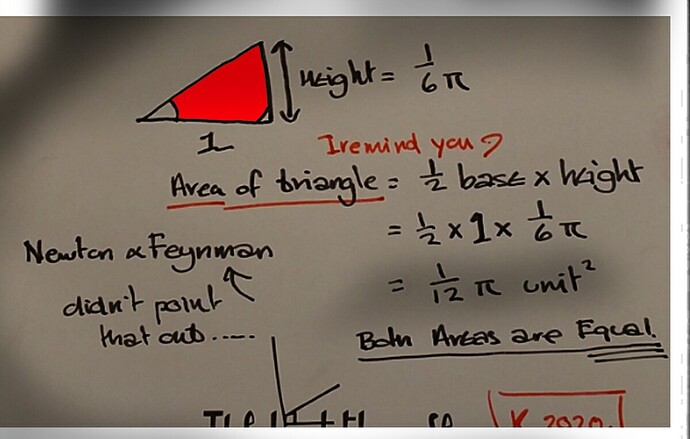 Height = 1/6 π
1
I remind you?
Area of triangle = 1/2 base x height
= 1/2 x 1 x 1/6 π
= 1/12 π unit²
Newton & Feynman
didn't point
that out.....
Both Areas are Equal.
K 2020